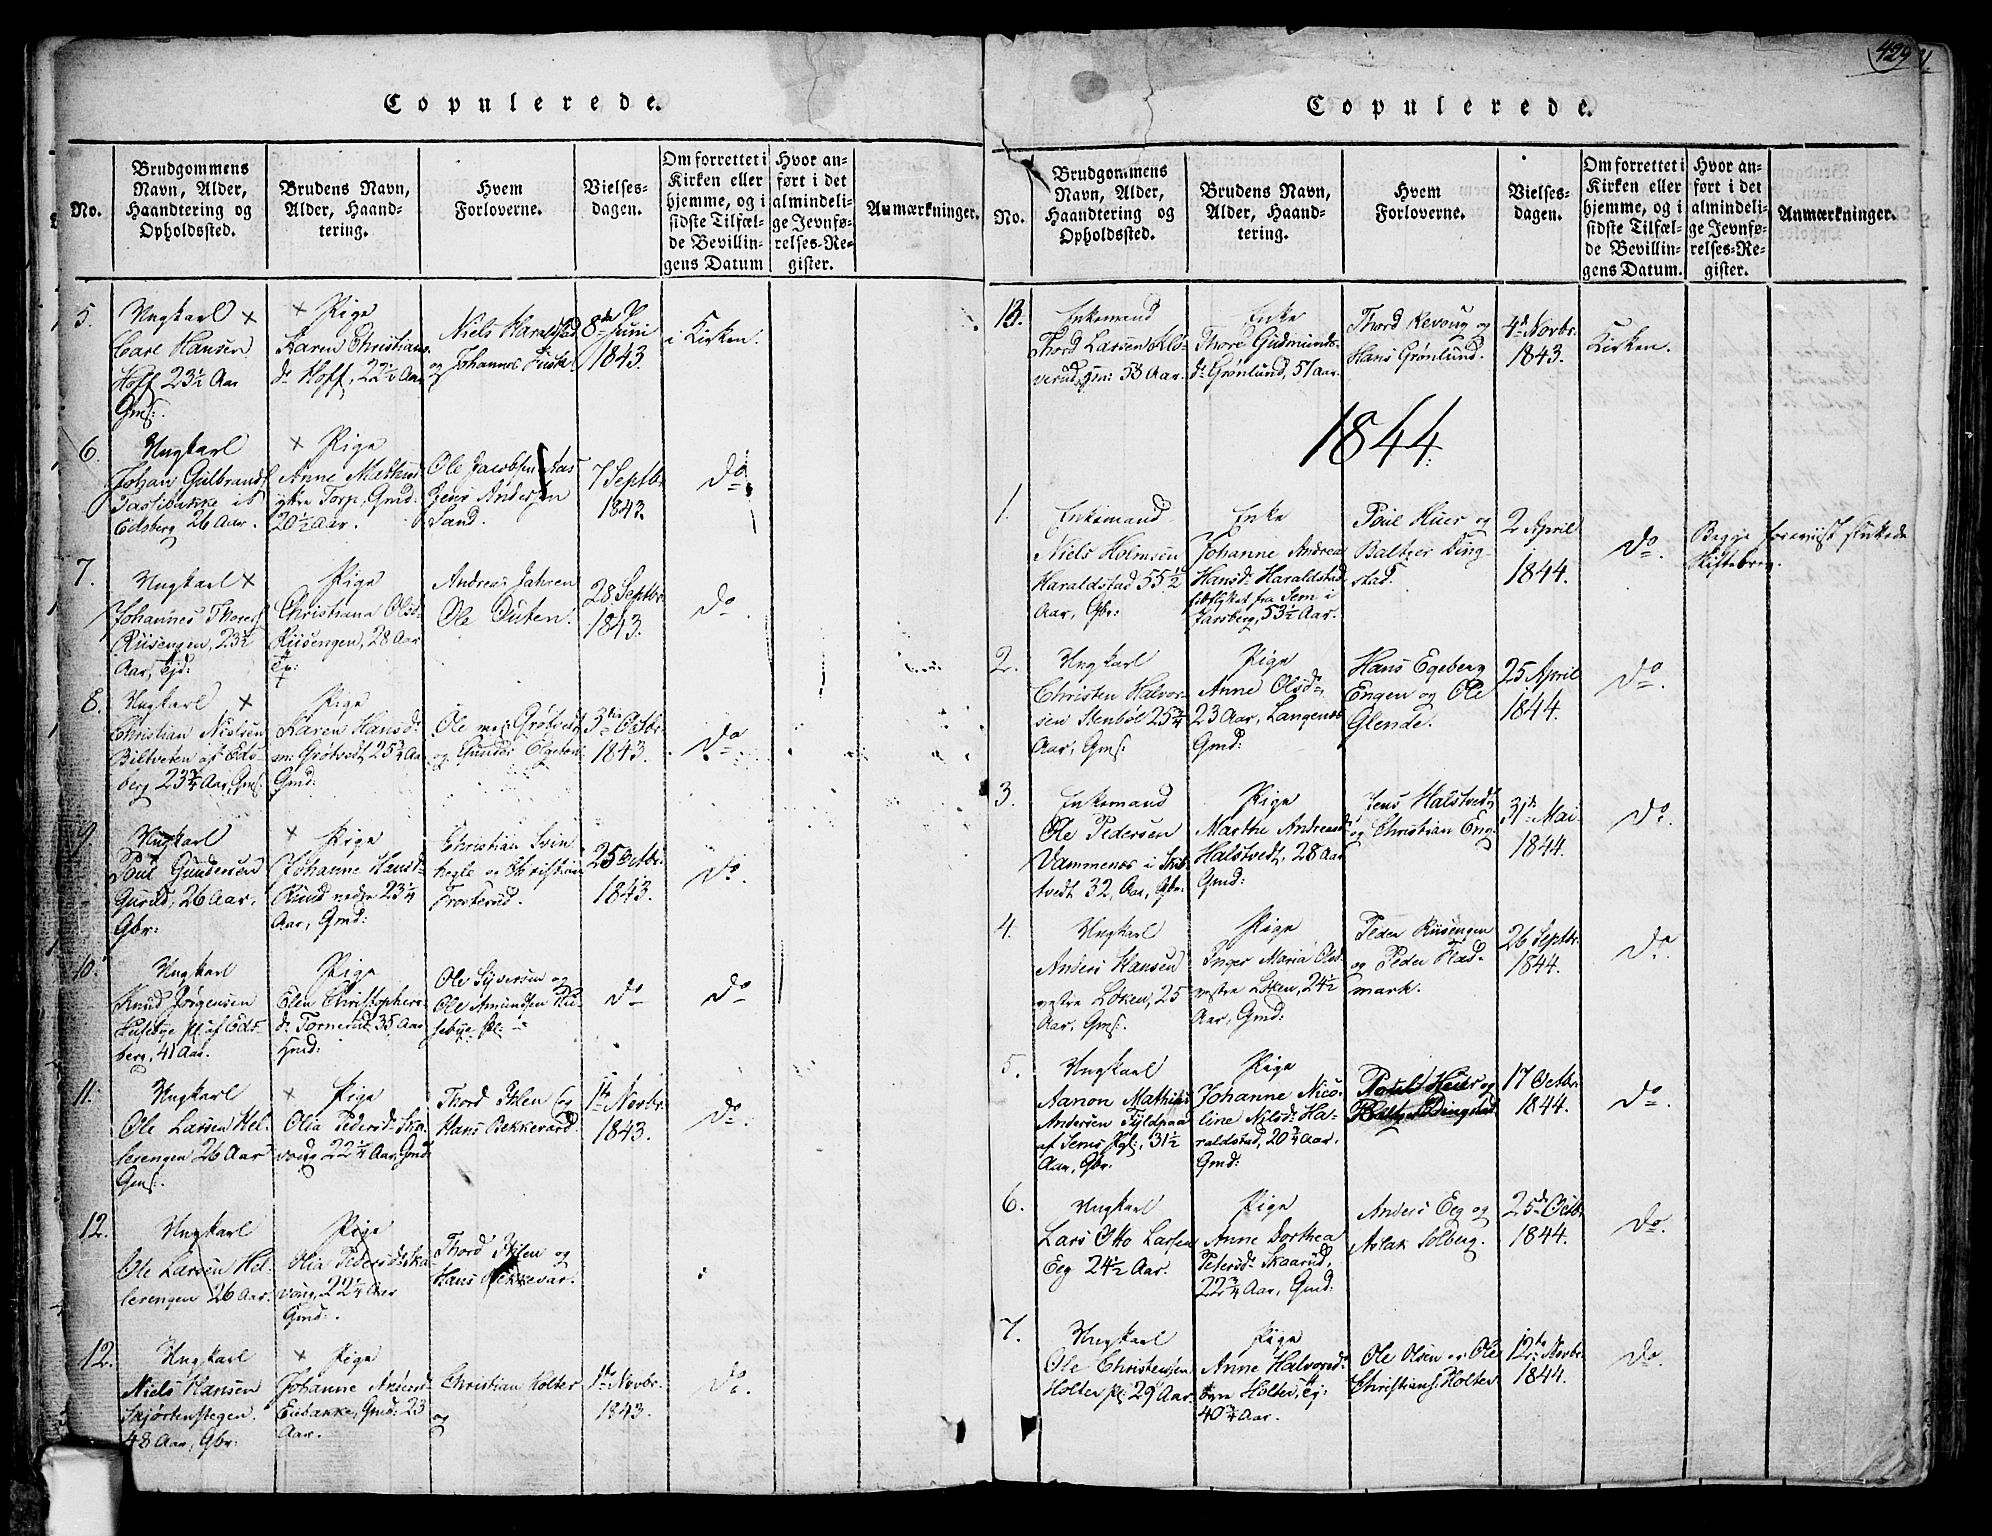 Copulerede.
No.
Brudgommens
Navn, Alder,
Haandtering og
Opholdssted.
Brudens Navn,
Alder, Haand-
tering.
Hvem
Forloverne.
Vielses-
dagen.
Om forrettet i
Kirken eller
hjemme, og i
sidste Tilfæl-
de Bevillin-
gens Datum
Hvor an-
ført i det
almindeli-
ge Jevnfø-
relses-Re-
gister.
Anmærkninger.
5.
Ungkarl ×
Carl Hansen
Hoff 23½ Aar
Gms:
× Pige
Karen Christians-
d: Hoff, 22½ Aar
Niels Haralstad
og Johannes
8de Juni
1843.
i Kirken.
6.
Ungkarl
Johan Gulbrands:
i
Edsberg 26 Aar.
× Pige
Anne
Torp, Gmd:
20½ Aar.
Ole Jacobsen Aas
Jens Andersen
Sand.
7 Septbr.
1843.
Do
7.
Ungkarl ×
Johannes Thores:
Riisengen, 23½
Aar, Ejd:
Pige
Christiana Olsd:
Riisengen, 28 Aar
Andreas Jahren
Ole Duten.
28 Septbr.
1843.
Do.
8.
Ungkarl ×
Christian Nielsen
Biltveten af Eds-
berg 23¾ Aar, Gms:
Pige
Karen Hansd:
Grøtvedt 25¾ Aar
Gmd:
Ole Grøtvedt
og Gunder
3die Octbr.
1843.
Do.
9.
Ungkarl
Poul Gundersen
Gurud, 26 Aar,
Gbr:
× Pige
Johanne Hansd:
Ruud nedre 23¼
Aar, Gmd:
Christian Svin-
og Christian
Froskerud.
25 Octbr.
1843.
Do.
10.
Ungkarl
Knud Jørgensen
Husebye pl: af Eds-
berg, 41 Aar.
Pige
Elen Christophers-
d: Tornerud 35 Aar
Hmd:
Ole Syversen og
Ole Amundsen Hu-
sebye pl:
Do
Do
11.
Ungkarl
Ole Larsen Hel-
lerengen 26 Aar
Gms:
× Pige
Olia Pedersd: Ska-
voug 22¼ Aar, Gmd:
Thord Ihlen og
Hans Bekkevard.
1te Novbr.
1843.
Do.
12.
Ungkarl
Ole Larsen Hel-
lerengen 26 Aar.
Pige
Olia Pedersd: Ska-
voug, 22¼ Aar
Gmd:
Thord Ihlen og
Hans Bekkevar.
12.
Ungkarl
Niels Hansen
Skjortenstegen
48 Aar, Gbr:
× Pige
Johanne Andersd:
Eidbakke, Gmd: 23
Aar.
Christian Holter
og
1te Novbr.
1843.
Do.
429
Copulerede.
No.
Brudgommens
Navn, Alder,
Haandtering og
Opholdssted.
Brudens Navn,
Alder, Haand-
tering.
Hvem
Forloverne.
Vielses-
dagen.
Om forrettet i
Kirken eller
hjemme, og i
sidste Tilfæl-
de Bevillin-
gens Datum.
Hvor an-
ført i det
almindeli-
ge Jevnfø-
relses-Re-
gister.
Anmærkninger.
13.
Enkemand
Thord Larsen Klo-
verud, 58 Aar.
Enke
Thore Gudmunds-
d: Grønlund, 51 aar.
Thord Revoug og
Hans Grønlund.
4de Novbr.
1843.
Kirken.
1844.
1.
Enkemand
Niels Holmsen
Haraldstad 55½
Aar, Gbr:
Enke
Johanne Andrea
Hansd: Haraldstad
tilflyttet fra Sem i
Jarsberg, 53½ Aar.
Poul Huer og
Baltzer Ding-
stad.
2 April
1844.
Do.
Begge foreviist
Skiftebrev.
2.
Ungkarl
Christen Halvor-
sen Stenbøl 25¾
Aar, Gms:
Pige
Anne Olsd:
23 Aar, Langenæs
Gmd:
Hans Egeberg
Engen og Ole
Glende.
25 April
1844.
Do.
3.
Enkemand
Ole Pedersen
Vammenæs i
32 Aar, Gbr:
Pige
Marthe Andreasd:
Halstvedt, 28 Aar
Gmd:
Jens Halstvedt
og Christian Eng.
31te Mai
1844.
Do.
4.
Ungkarl
Anders Hansen
vestre Løken, 25
Aar, Gms:
Pige
Inger Maria Olsd:
vestre Løken, 24½
Aar, Gmd:
Peder Riisengen
og Peder Flad-
mark.
26 Septbr.
1844.
Do.
5.
Ungkarl
Aanon Mathias
Andersen Fyldpaa
af Sems Pgl:, 31½
Aar, Gbr.
Pige
Johanne Nico-
line Nilsd: Ha-
raldstad, 20¾ Aar,
Gmd:
Poul Huer og
Baltzer Dingstad
17 Octbr.
1844.
Do.
6.
Ungkarl
Lars Otto Larsen
Eeg 24½ Aar.
Pige
Anne Dorthea
Petersd: Skaarud,
22¾ Aar, Gmd:
Anders Eeg og
Aslak Solberg.
25de Octbr.
1844.
Do.
7.
Ungkarl
Ole Christensen
Holter pl: 29 Aar.
Pige
Anne Halvorsd:
Holter, Ej:
40¾ Aar.
Ole Olsen og Ole
Christians: Holter
12te Novbr.
1844.
Do.